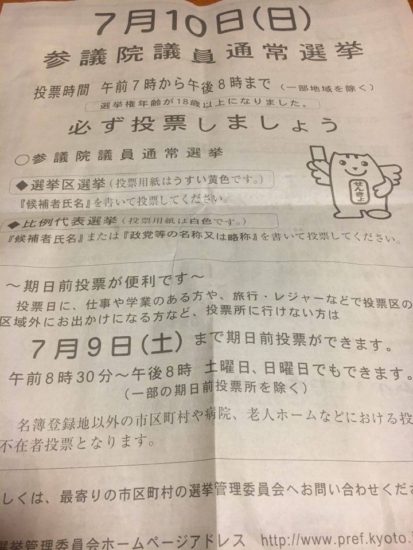 7月10日(日)
参議院議員通常選挙
投票時間 午前7時から午後8時まで(一部地域を除く)
選挙権年齢が18歳以上になりました。
必ず投票しましょう
○参議院議員通常選挙
◆選挙区選挙(投票用紙はうすい黄色です。)
『候補者氏名』を書いて投票してください。
せんきょ
◆比例代表選挙(投票用紙は白色です。)
『候補者氏名』または『政党等の名称又は略称』を書いて投票してください。
~期日前投票が便利です~
投票日に、仕事や学業のある方や、旅行・レジャーなどで投票区の
区域外にお出かけになる方など、投票所に行けない方は
7月9日(土)まで期日前投票ができます。
午前8時30分~午後8時 土曜日、日曜日でもできます。
(一部の期日前投票所を除く)
名簿登録地以外の市区町村や病院、老人ホームなどにおける投
不在者投票となります。
しくは、最寄りの市区町村の選挙管理委員会へお問い合わせくださ
選挙管理委員会ホームページアドレス http://www.pref.kyoto.